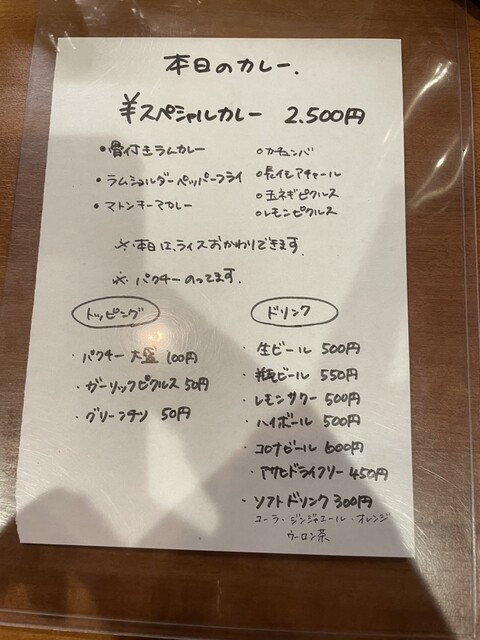 本日のカレー.
¥スペシャルカレー 2.500円
•骨付きラムカレー
•ラムショルダーペッパーフライ
•マトンキーマカレー
○カチュンバ
○長イモアチャール
○玉ネギピクルス
○レモンピクルス
※本日は、ライスおかわりできます.
※パクチーのってます.
トッピング
・パクチー大盛 100円
・ガーリックピクルス 50円
・グリーンチリ 50円
ドリンク
・生ビール 500円
・瓶ビール 550円
・レモンサワー 500円
・ハイボール 500円
・コロナビール 600円
・アサヒドライフリー 450円
・ソフトドリンク 300円
コーラ・ジンジャエール・オレンジ
ウーロン茶